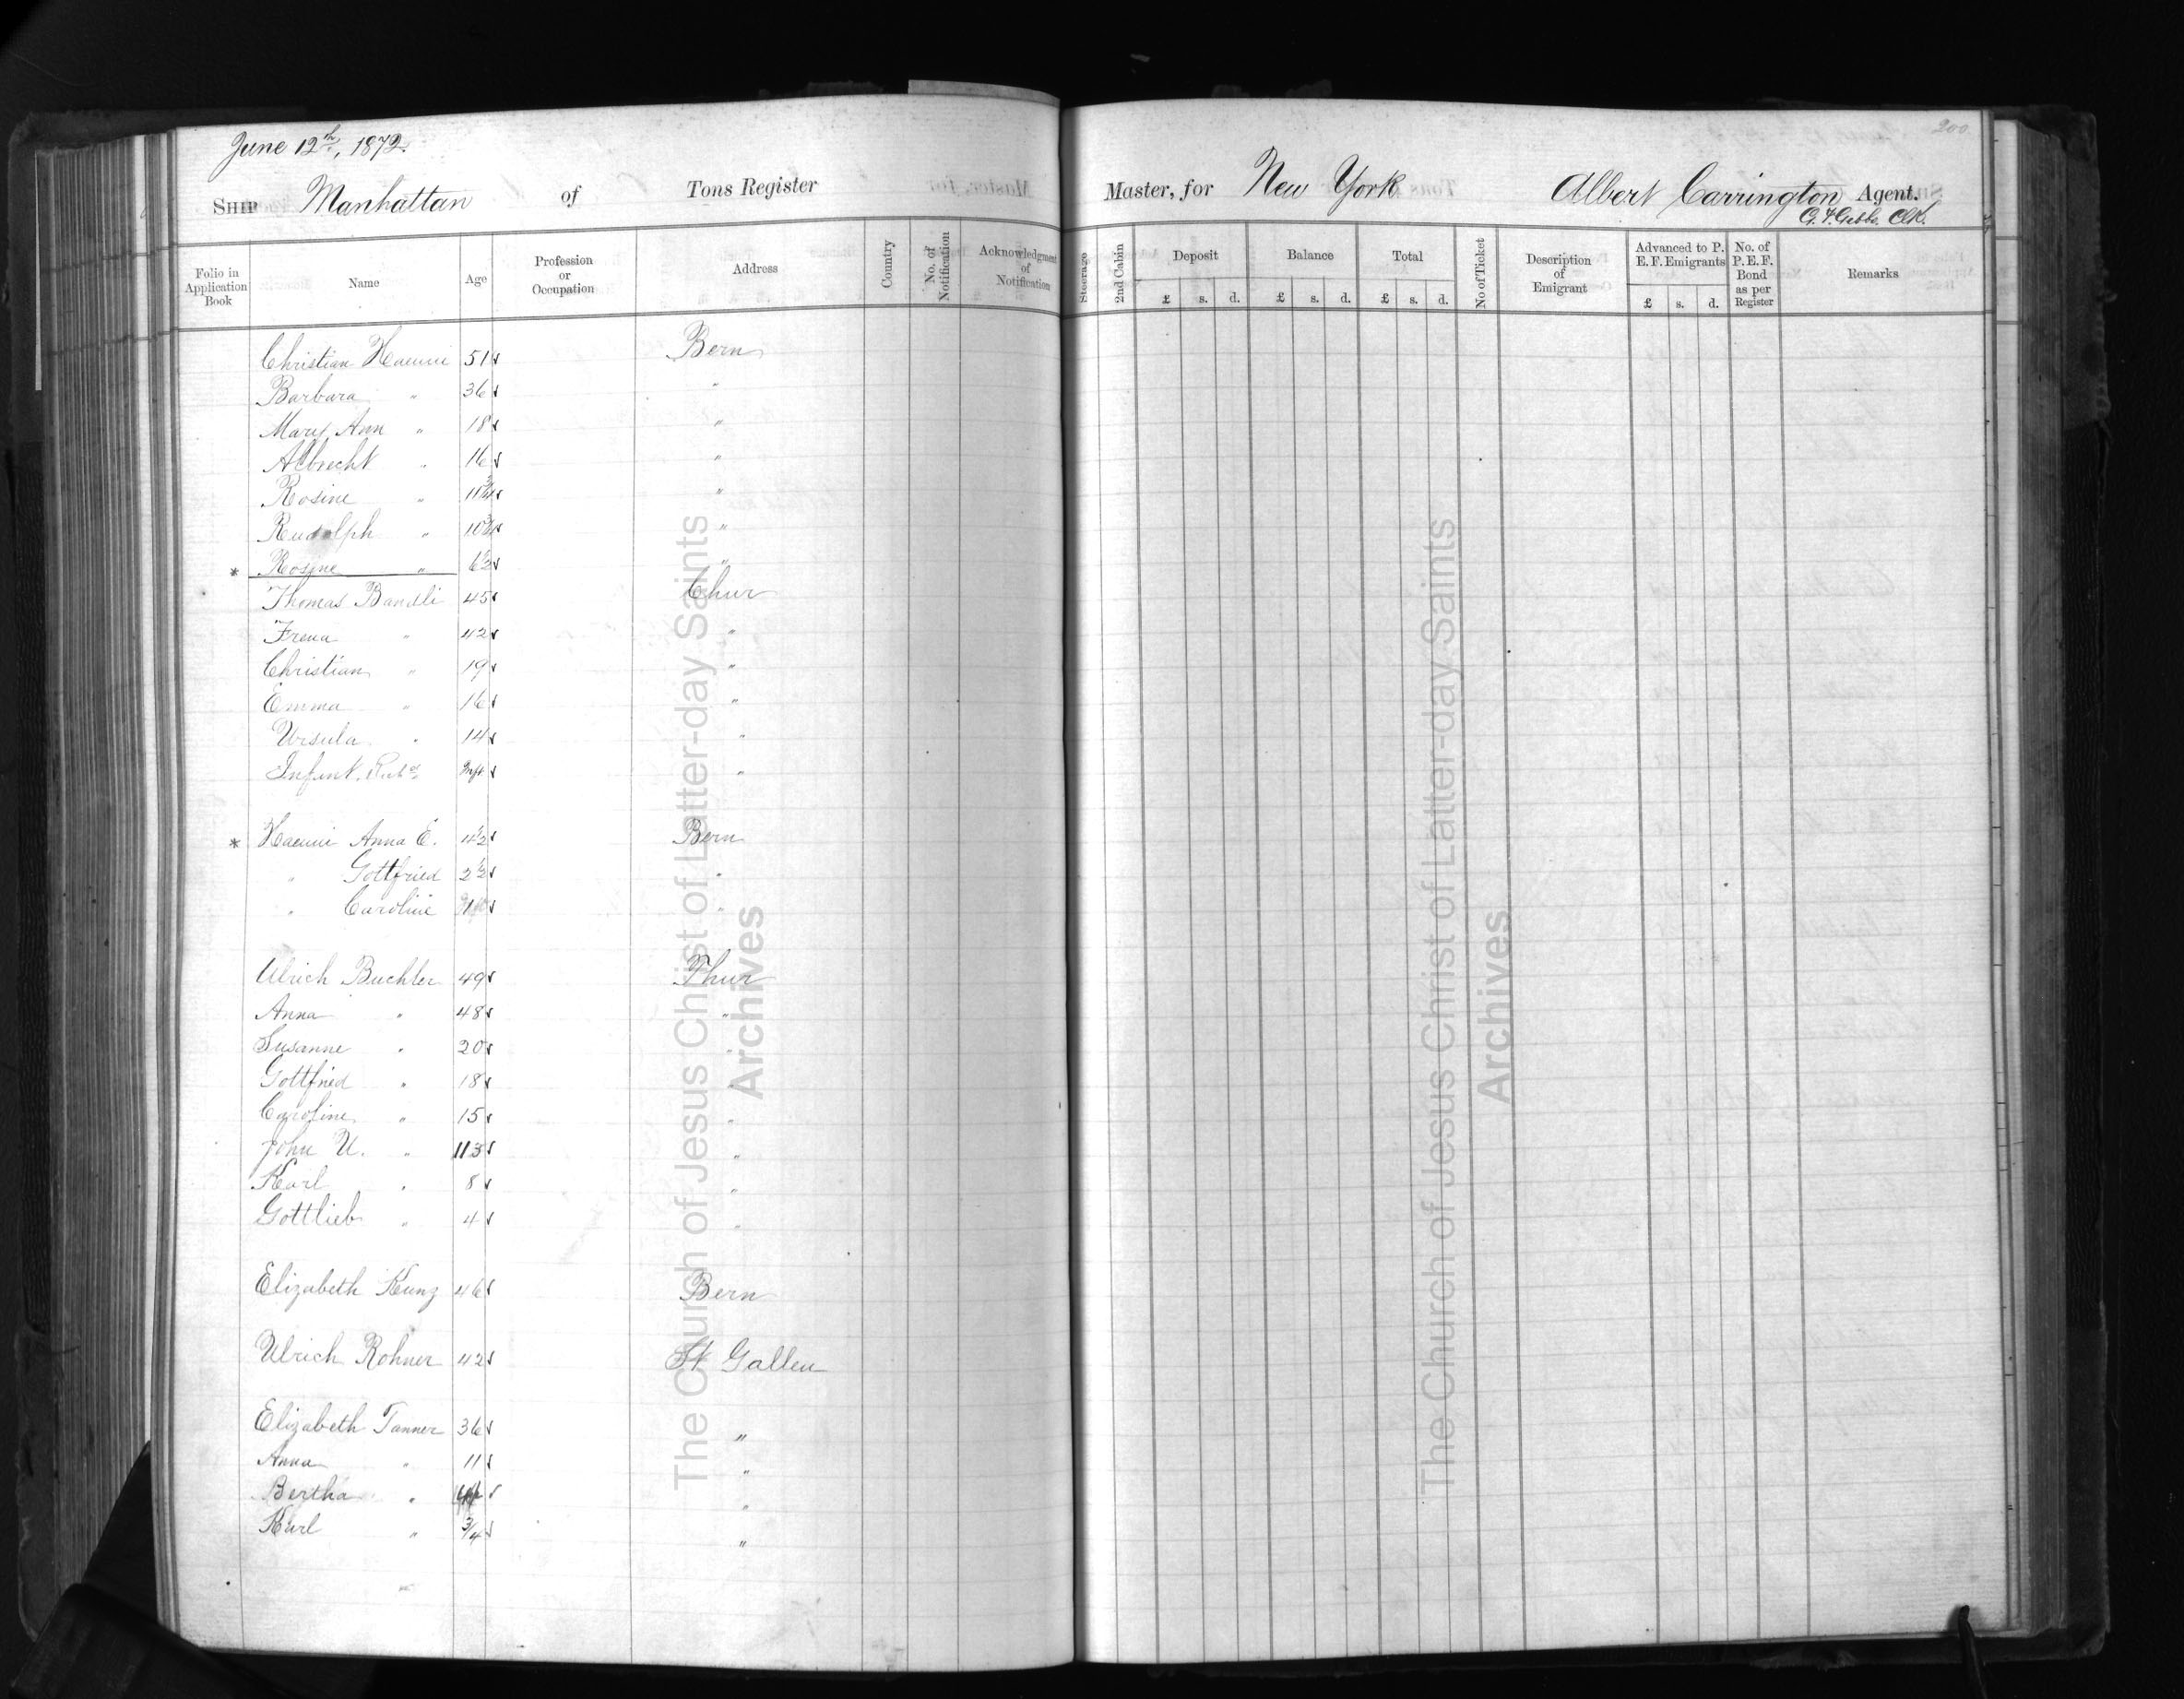 June 12th, 1872.
200
SHIP Manhattan of Tons Register Master, for New York Albert Carrington Agent.
G. F. Gibbs Clk.
Folio in Application Book Name Age Profession or Occupation Address Country No. of Notification Acknowledgment of Notification Steerage 2nd Cabin Deposit £ s. d. Balance £ s. d. Total £ s. d. No of Ticket Description of Emigrant Advanced to P. E. F. Emigrants £ s. d. No. of P. E. F. Bond as per Register Remarks
Christian Haenni 51 Bern
Barbara " 36 "
Mary Ann " 18 "
Albrecht " 16 "
Rosine " "
Rudolph " 10 3/4 "
* Rosine " 6 1/2 "
Thomas Bandli 45 Chur
Frena " 42 "
Christian " 19 "
Emma " 16 "
Ursula " 14 "
Infant "
* Haenni Anna E. 4 1/2 Bern
" Gottfried 2 1/2 "
" Caroline "
Ulrich Buchler 49 Thur
Anna " 48 "
Susanne " 20 "
Gottfried " 18 "
Caroline " 15 "
John U. " "
Karl " 8 "
Gottlieb " 4 "
Elizabeth Kunz 46 Bern
Ulrich Rohner 42 St Gallen
Elizabeth Tanner 36 "
Anna " 11 "
Bertha " "
Karl " 3/4 "
The Church of Jesus Christ of Latter-day Saints
Archives
The Church of Jesus Christ of Latter-day Saints
Archives